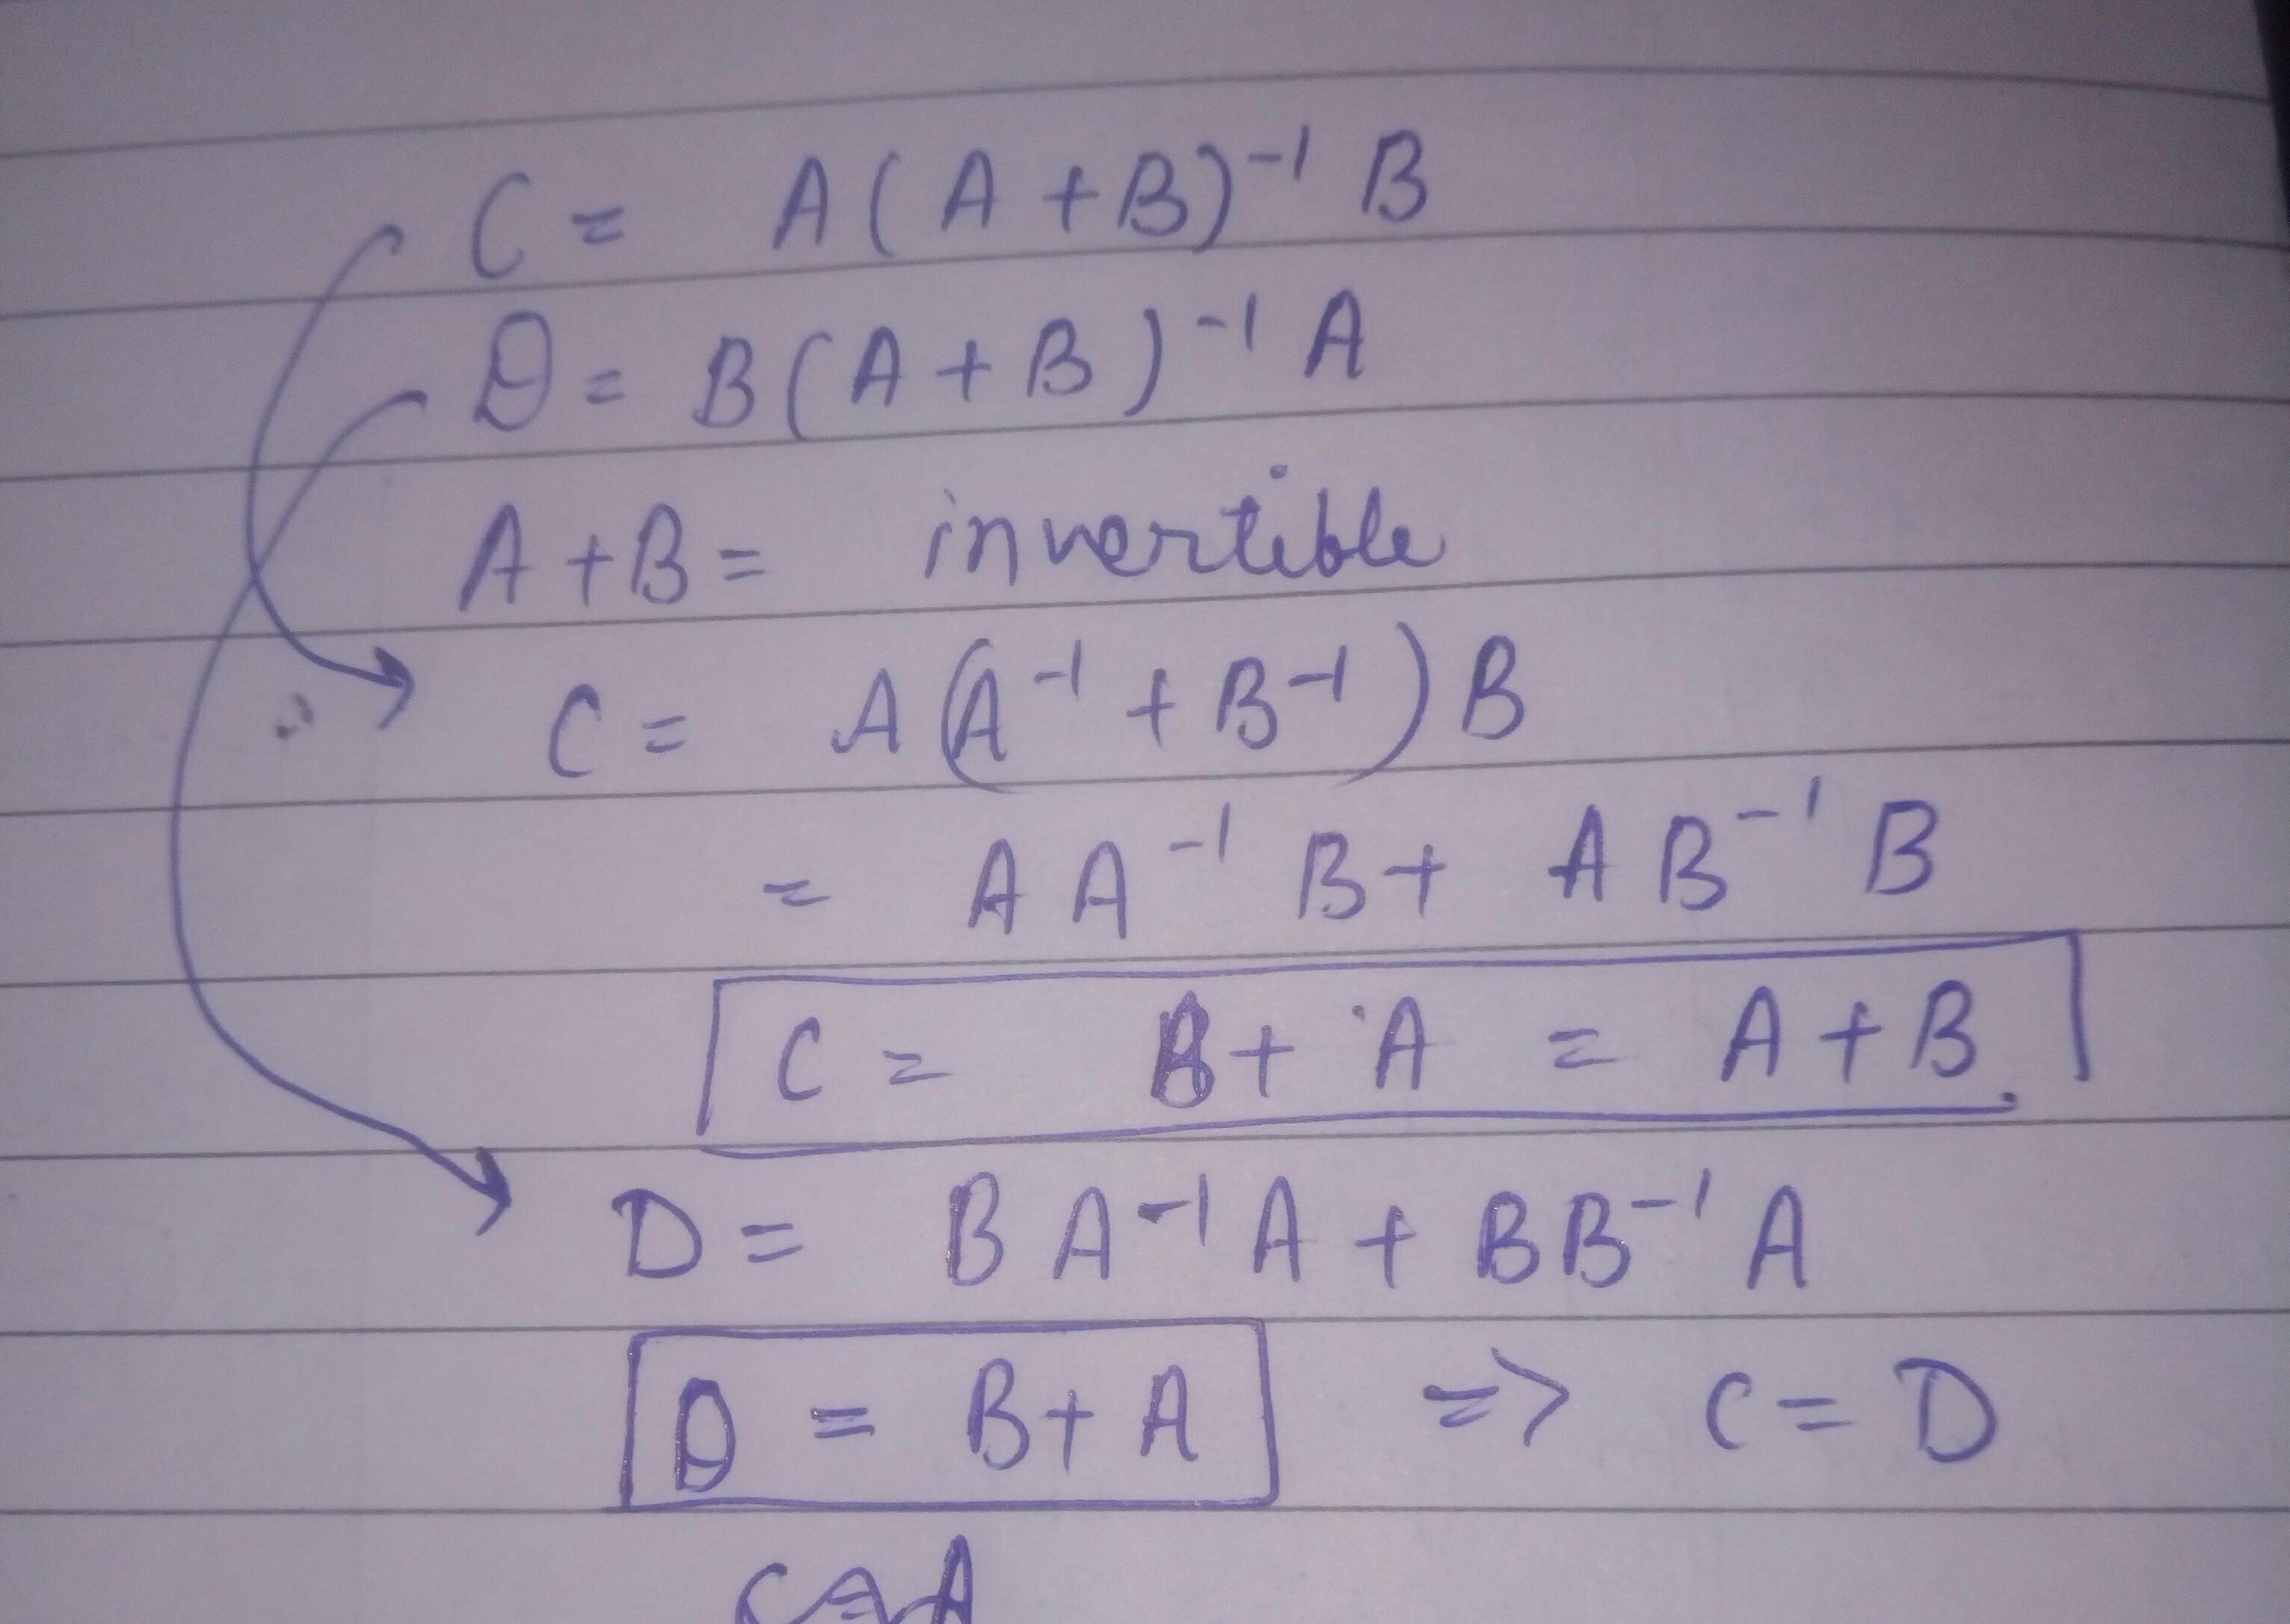 C = A(A+B)⁻¹ B
D = B(A+B)⁻¹ A
A+B = invertible
C = A(A⁻¹ + B⁻¹) B
= A A⁻¹ B + A B⁻¹ B
C = B + A = A + B
D = B A⁻¹ A + B B⁻¹ A
D = B + A => C = D